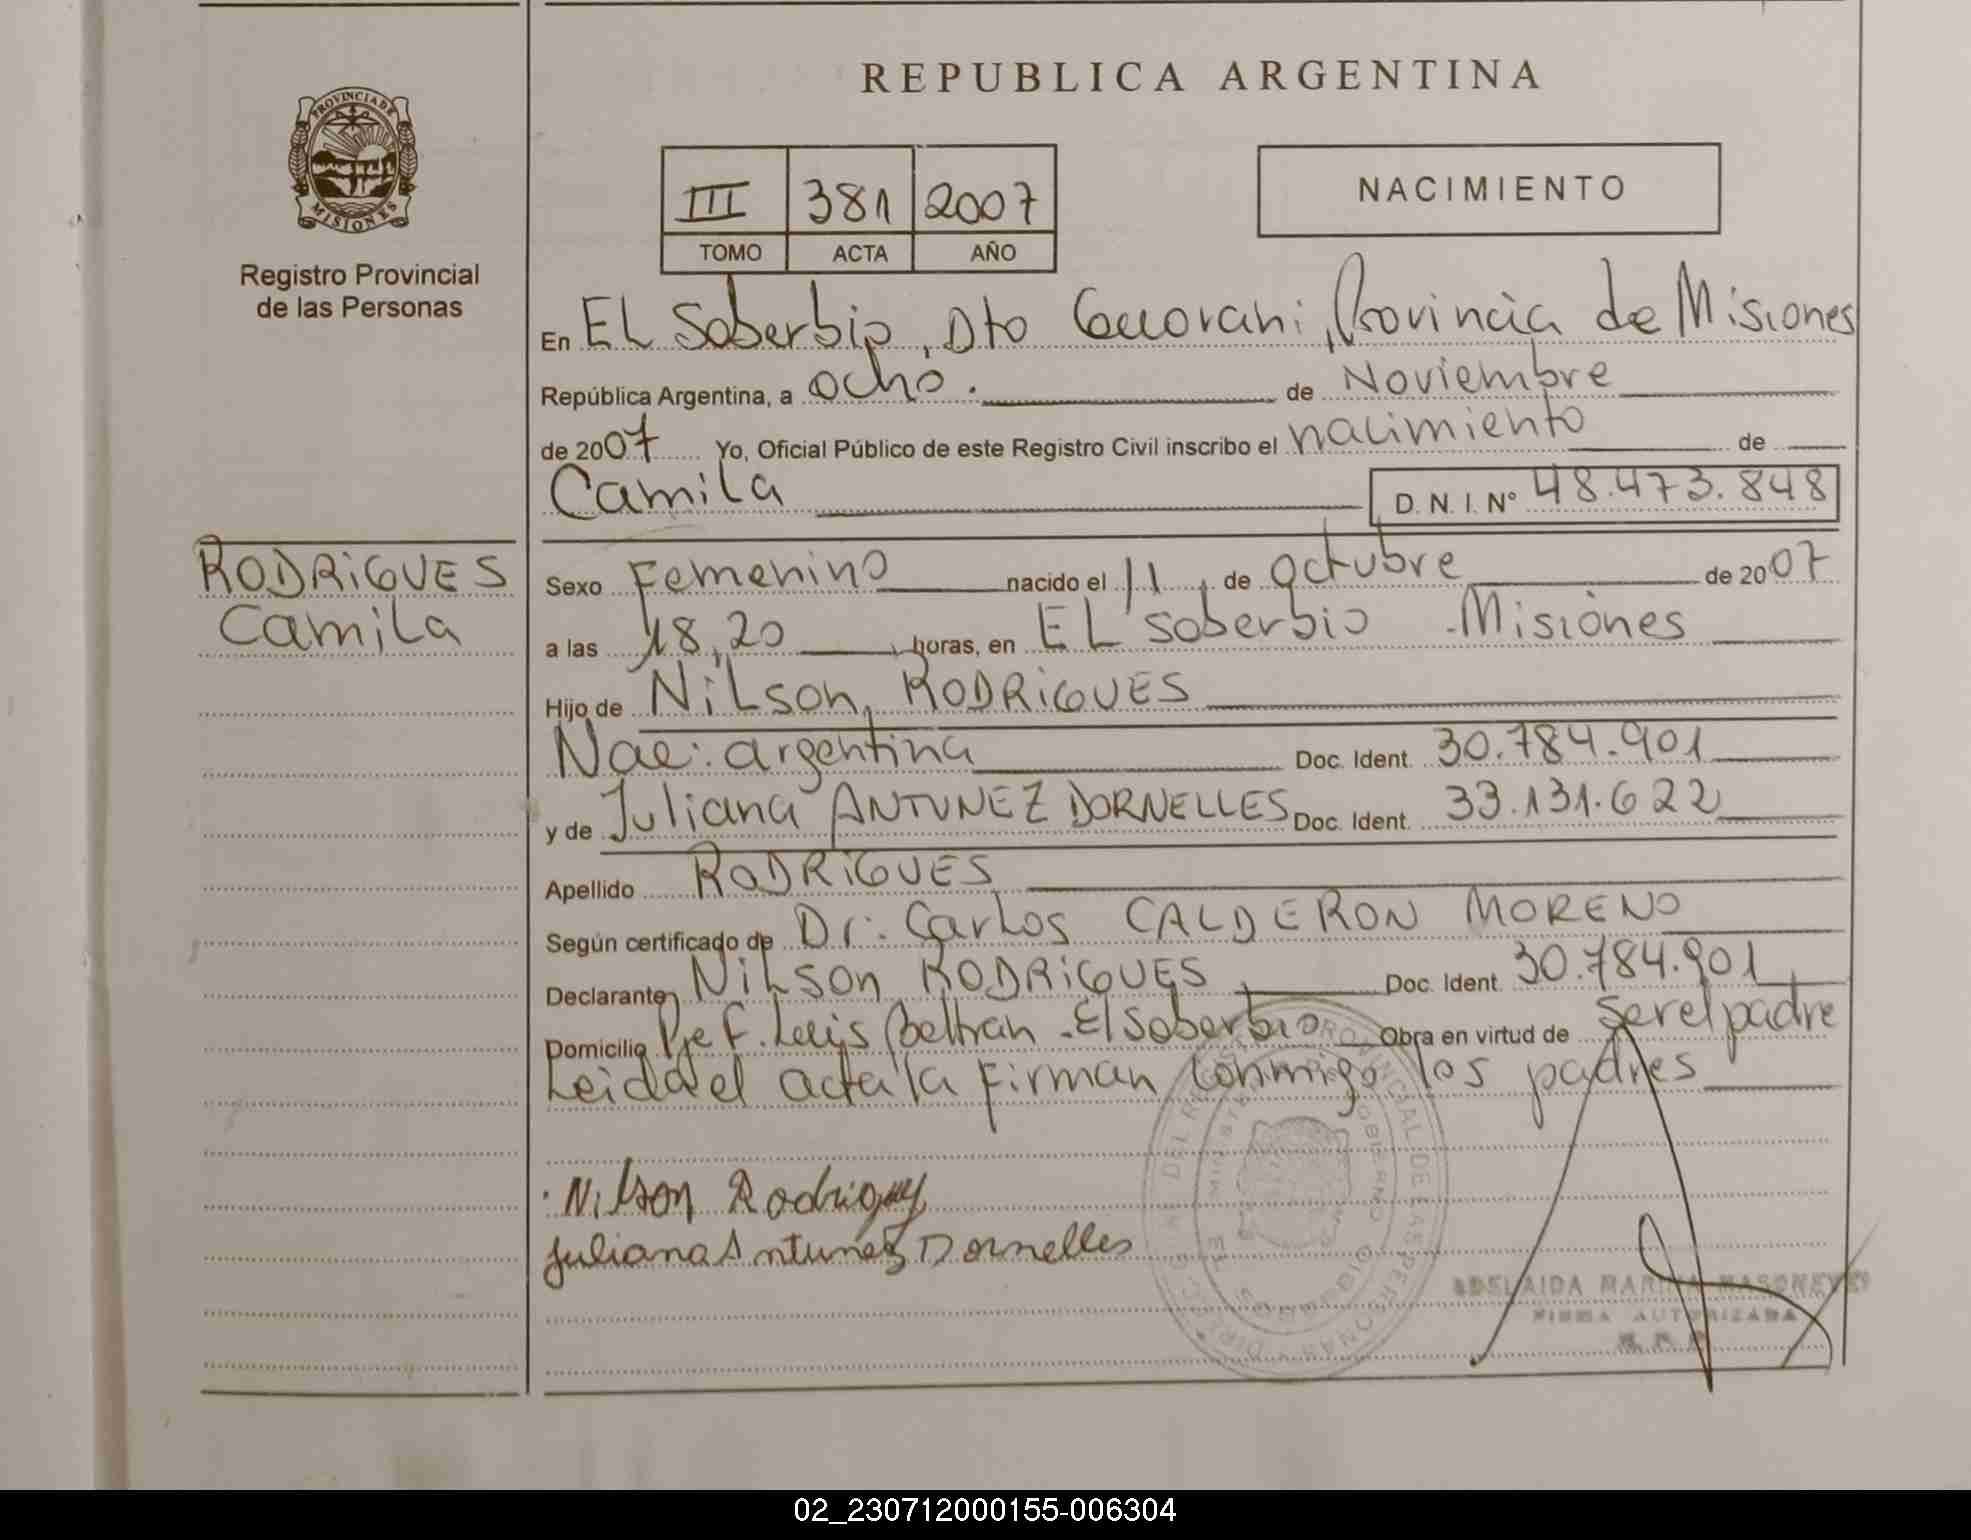 PROVINCIA DE
MISIONES
Registro Provincial
de las Personas
RODRiGUES
Camila
REPUBLICA ARGENTINA
III 381 2007
TOMO ACTA AÑO
NACIMIENTO
En EL Soberbio, Dto Guarani, Provincia de Misiones
República Argentina, a ocho. de Noviembre
de 2007 Yo, Oficial Público de este Registro Civil inscribo el nacimiento de
Camila D. N. I. Nº 48.473.848
Sexo Femenino nacido el 11 de octubre de 2007
a las 18,20 horas, en EL Soberbio - Misiones
Hijo de NiLson, RODRiGUES
Nac: argentina Doc. Ident. 30.784.901
y de Juliana ANTUNEZ DORNELLES Doc. Ident. 33.131.622
Apellido RODRiGUES
Según certificado de Dr: Carlos CALDERON MORENO
Declarante NiLson RODRiGUES Doc. Ident. 30.784.901
Domicilio Pje F. Luis Beltran - El Soberbio Obra en virtud de ser el padre
Leida el acta la Firman conmigo los padres
Nilson Rodrigues
Juliana Antunez Dornelles
ADELAIDA MARINA
FIRMA AUTORIZADA
02_230712000155-006304